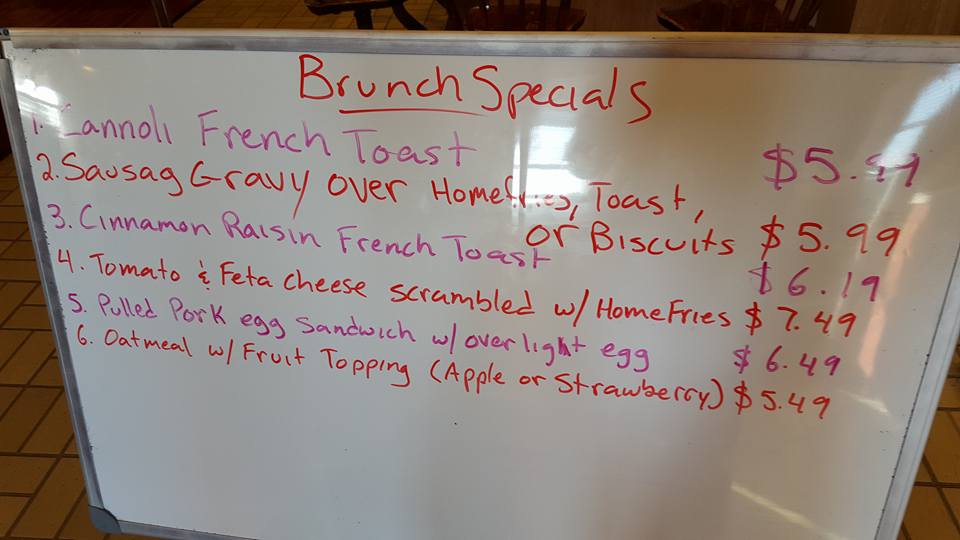 Brunch Specials
1. Cannoli French Toast $5.99
2. Sausag Gravy over Homefries, Toast,
or Biscuits $5.99
3. Cinnamon Raisin French Toast $6.19
4. Tomato & Feta Cheese scrambled w/ HomeFries $7.49
5. Pulled Pork egg Sandwich w/ over light egg $6.49
6. Oatmeal w/ Fruit Topping (Apple or Strawberry) $5.49